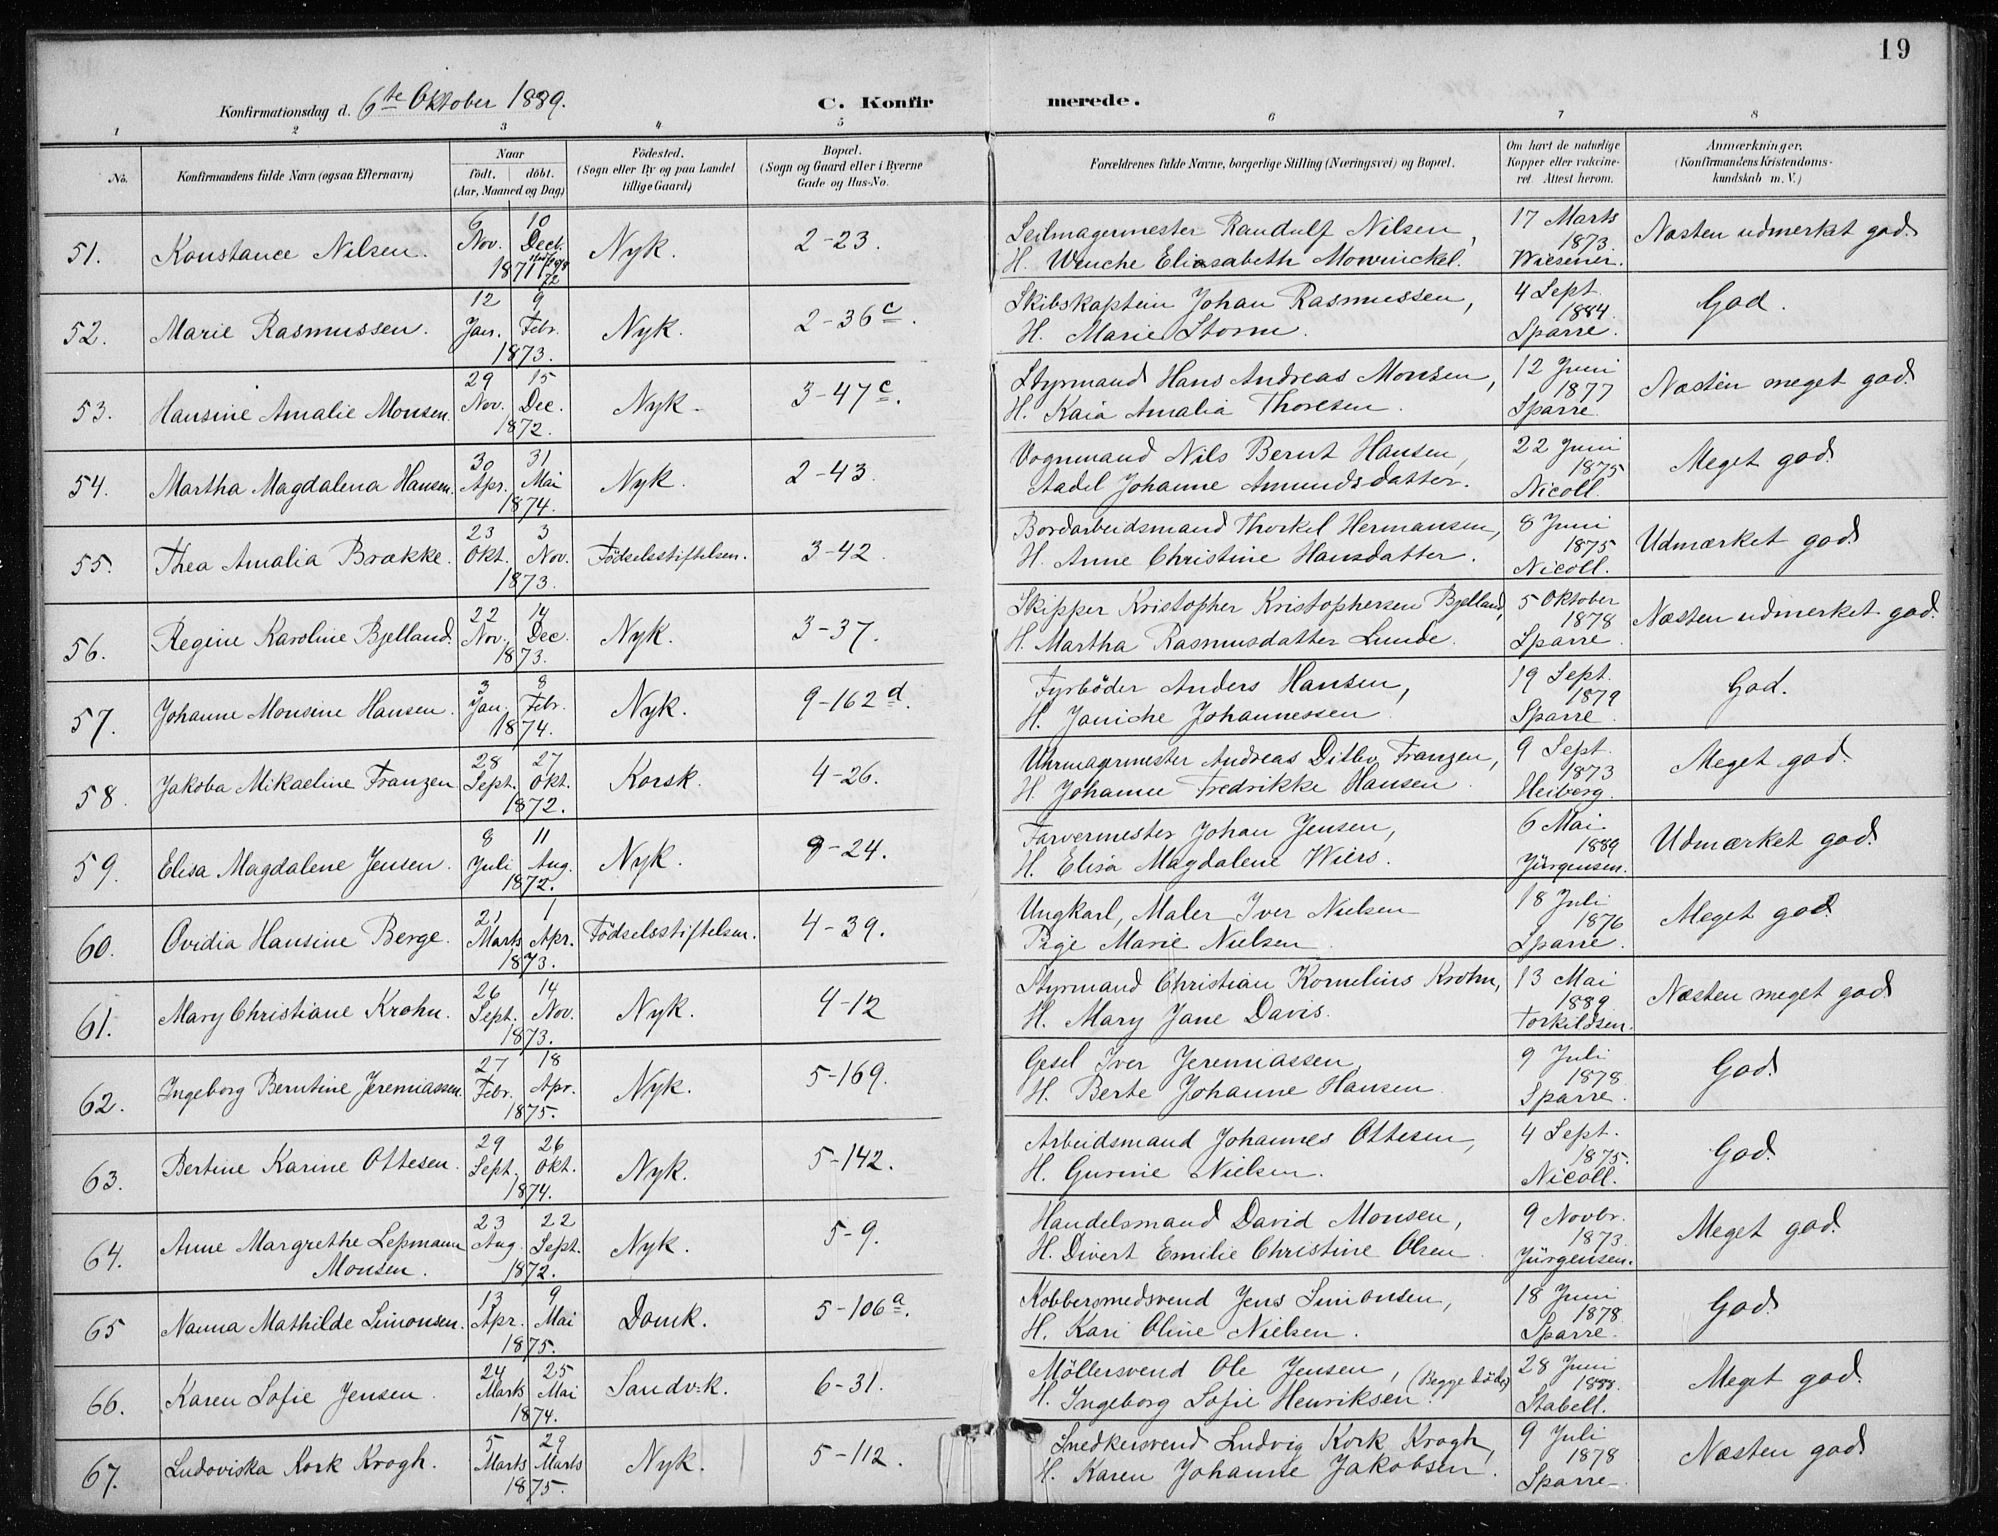 19
Konfirmationsdag d. 6te Oktober 1889.
C. Konfirmerede.
1 2 3 4 5 6 7 8
No. | Konfirmandens fulde Navn (ogsaa Efternavn) | Naar födt. döbt. (Aar, Maaned og Dag) | Födested. (Sogn eller By og paa Landet tillige Gaard) | Bopæl. (Sogn og Gaard eller i Byerne Gade og Hus-No. | Forældrenes fulde Navne, borgerlige Stilling (Næringsvei) og Bopæl. | Om havt de naturlige Kopper eller vakcineret. Attest herom. | Anmærkninger. (Konfirmandens Kristendomskundskab m. V.)
51. Konstance Nilsen. | 6 Nov. | 10 Decb. 1871 | Nyk. | 2-23. | Seilmagermester Randulf Nilsen, | 17 Marts 1873. | Næsten udmerket god.
H. Wenche Eliasabeth Mowinckel. | Wiesener.
52. Marie Rasmussen. | 12 Jan. | 9 Febr. 1873. | Nyk. | 2-36c. | Skibskaptein Johan Rasmussen, | 4 Sept. 1884. | God.
H. Marie Storm. | Sparre.
53. Hansine Amalie Monsen. | 29 Nov. | 15 Dec. 1872. | Nyk. | 3-47c. | Styrmand Hans Andreas Monsen, | 12 Juni 1877 | Næsten meget god.
H. Kaia Amalia Thoresen. | Sparre.
54. Martha Magdalena Hansen. | 30 Apr. | 31 Mai 1874. | Nyk. | 2-43. | Vognmand Nils Bernt Hansen, | 22 Juni 1875 | Meget god.
Aadel Johanne Amundsdatter. | Nicoll.
55. Thea Amalia Brække. | 23 Okt. | 3 Nov. 1873. | Födselsstiftelsen. | 3-42. | Bordarbeidsmand Thorkel Hermansen, | 8 Juni 1875 | Udmærket god.
H. Anne Christine Hansdatter. | Nicoll.
56. Regine Karoline Bjelland. | 22 Nov. | 14 Dec. 1873. | Nyk. | 3-37. | Skipper Kristopher Kristophersen Bjelland, | 5 Oktober 1878 | Næsten udmerket god.
H. Martha Rasmusdatter Lunde. | Sparre.
57. Johanne Monsine Hansen. | 3 Jan. | 8 Febr. 1874. | Nyk. | 9-162d. | Fyrböder Anders Hansen, | 19 Sept. 1879 | God.
H. Janiche Johannessen. | Sparre.
58. Jakoba Mikaeline Franzen | 28 Sept. | 27 Okt. 1872. | Korsk. | 4-26. | Uhrmagermester Andreas Ditlev Franzen, | 9 Sept. 1873 | Meget god.
H. Johanne Fredrikke Hansen. | Heiberg.
59. Elisa Magdalene Jensen. | 8 Juli | 11 Aug. 1872. | Nyk. | 8-24. | Farvermester Johan Jensen, | 6 Mai 1889 | Udmærket god.
H. Elisa Magdalene Wiers. | Jürgensen.
60. Ovidia Hansine Berge. | 21 Marts | 1 Apr. 1873. | Födselsstiftelsen. | 4-39. | Ungkarl, Maler Iver Nielsen | 18 Juli 1876 | Meget god.
Pige Marie Nielsen. | Sparre.
61. Mary Christiane Krohn. | 26 Sept. | 14 Nov. 1873. | Nyk. | 4-12 | Styrmand Christian Kornelius Krohn, | 13 Mai 1889 | Næsten meget god
H. Mary Jane Davis. | Torkildsen.
62. Ingeborg Berntine Jeremiassen. | 27 Febr. | 18 Apr. 1875. | Nyk. | 5-169. | Gesel Iver Jeremiassen, | 9 Juli 1878. | God.
H. Berte Johanne Hansen. | Sparre.
63. Bertine Karine Ottesen. | 29 Sept. | 26 Okt. 1874. | Nyk. | 5-142. | Arbeidsmand Johannes Ottesen, | 4 Sept. 1875. | God.
H. Gurine Nielsen. | Nicoll.
64. Anne Margrethe Lepmann Monsen. | 23 Aug. | 22 Sept. 1872. | Nyk. | 5-9. | Handelsmand David Monsen, | 9 Novbr. 1873. | Meget god.
H. Divert Emilie Christine Olsen. | Jürgensen.
65 Nanna Mathilde Simonsen. | 13 Apr. | 9 Mai 1875. | Domk. | 5-106a. | Kobbersmedsvend Jens Simonsen, | 18 Juni 1878. | God
H. Kari Oline Nielsen. | Sparre.
66. Karen Sofie Jensen. | 24 Marts | 25 Mai 1874. | Sandv:k. | 6-31. | Möllersvend Ole Jensen, (Begge döde) | 28 Juni 1888. | Meget god.
H. Ingeborg Sofie Henriksen. | Stabell.
67. Ludoviska Kork Krogh. | 5 Marts | 29 Marts 1875. | Nyk. | 5-112. | Snedkersvend Ludvig Kork Krogh, | 9 Juli 1878 | Næsten god
H. Karen Johanne Jakobsen. | Sparre.